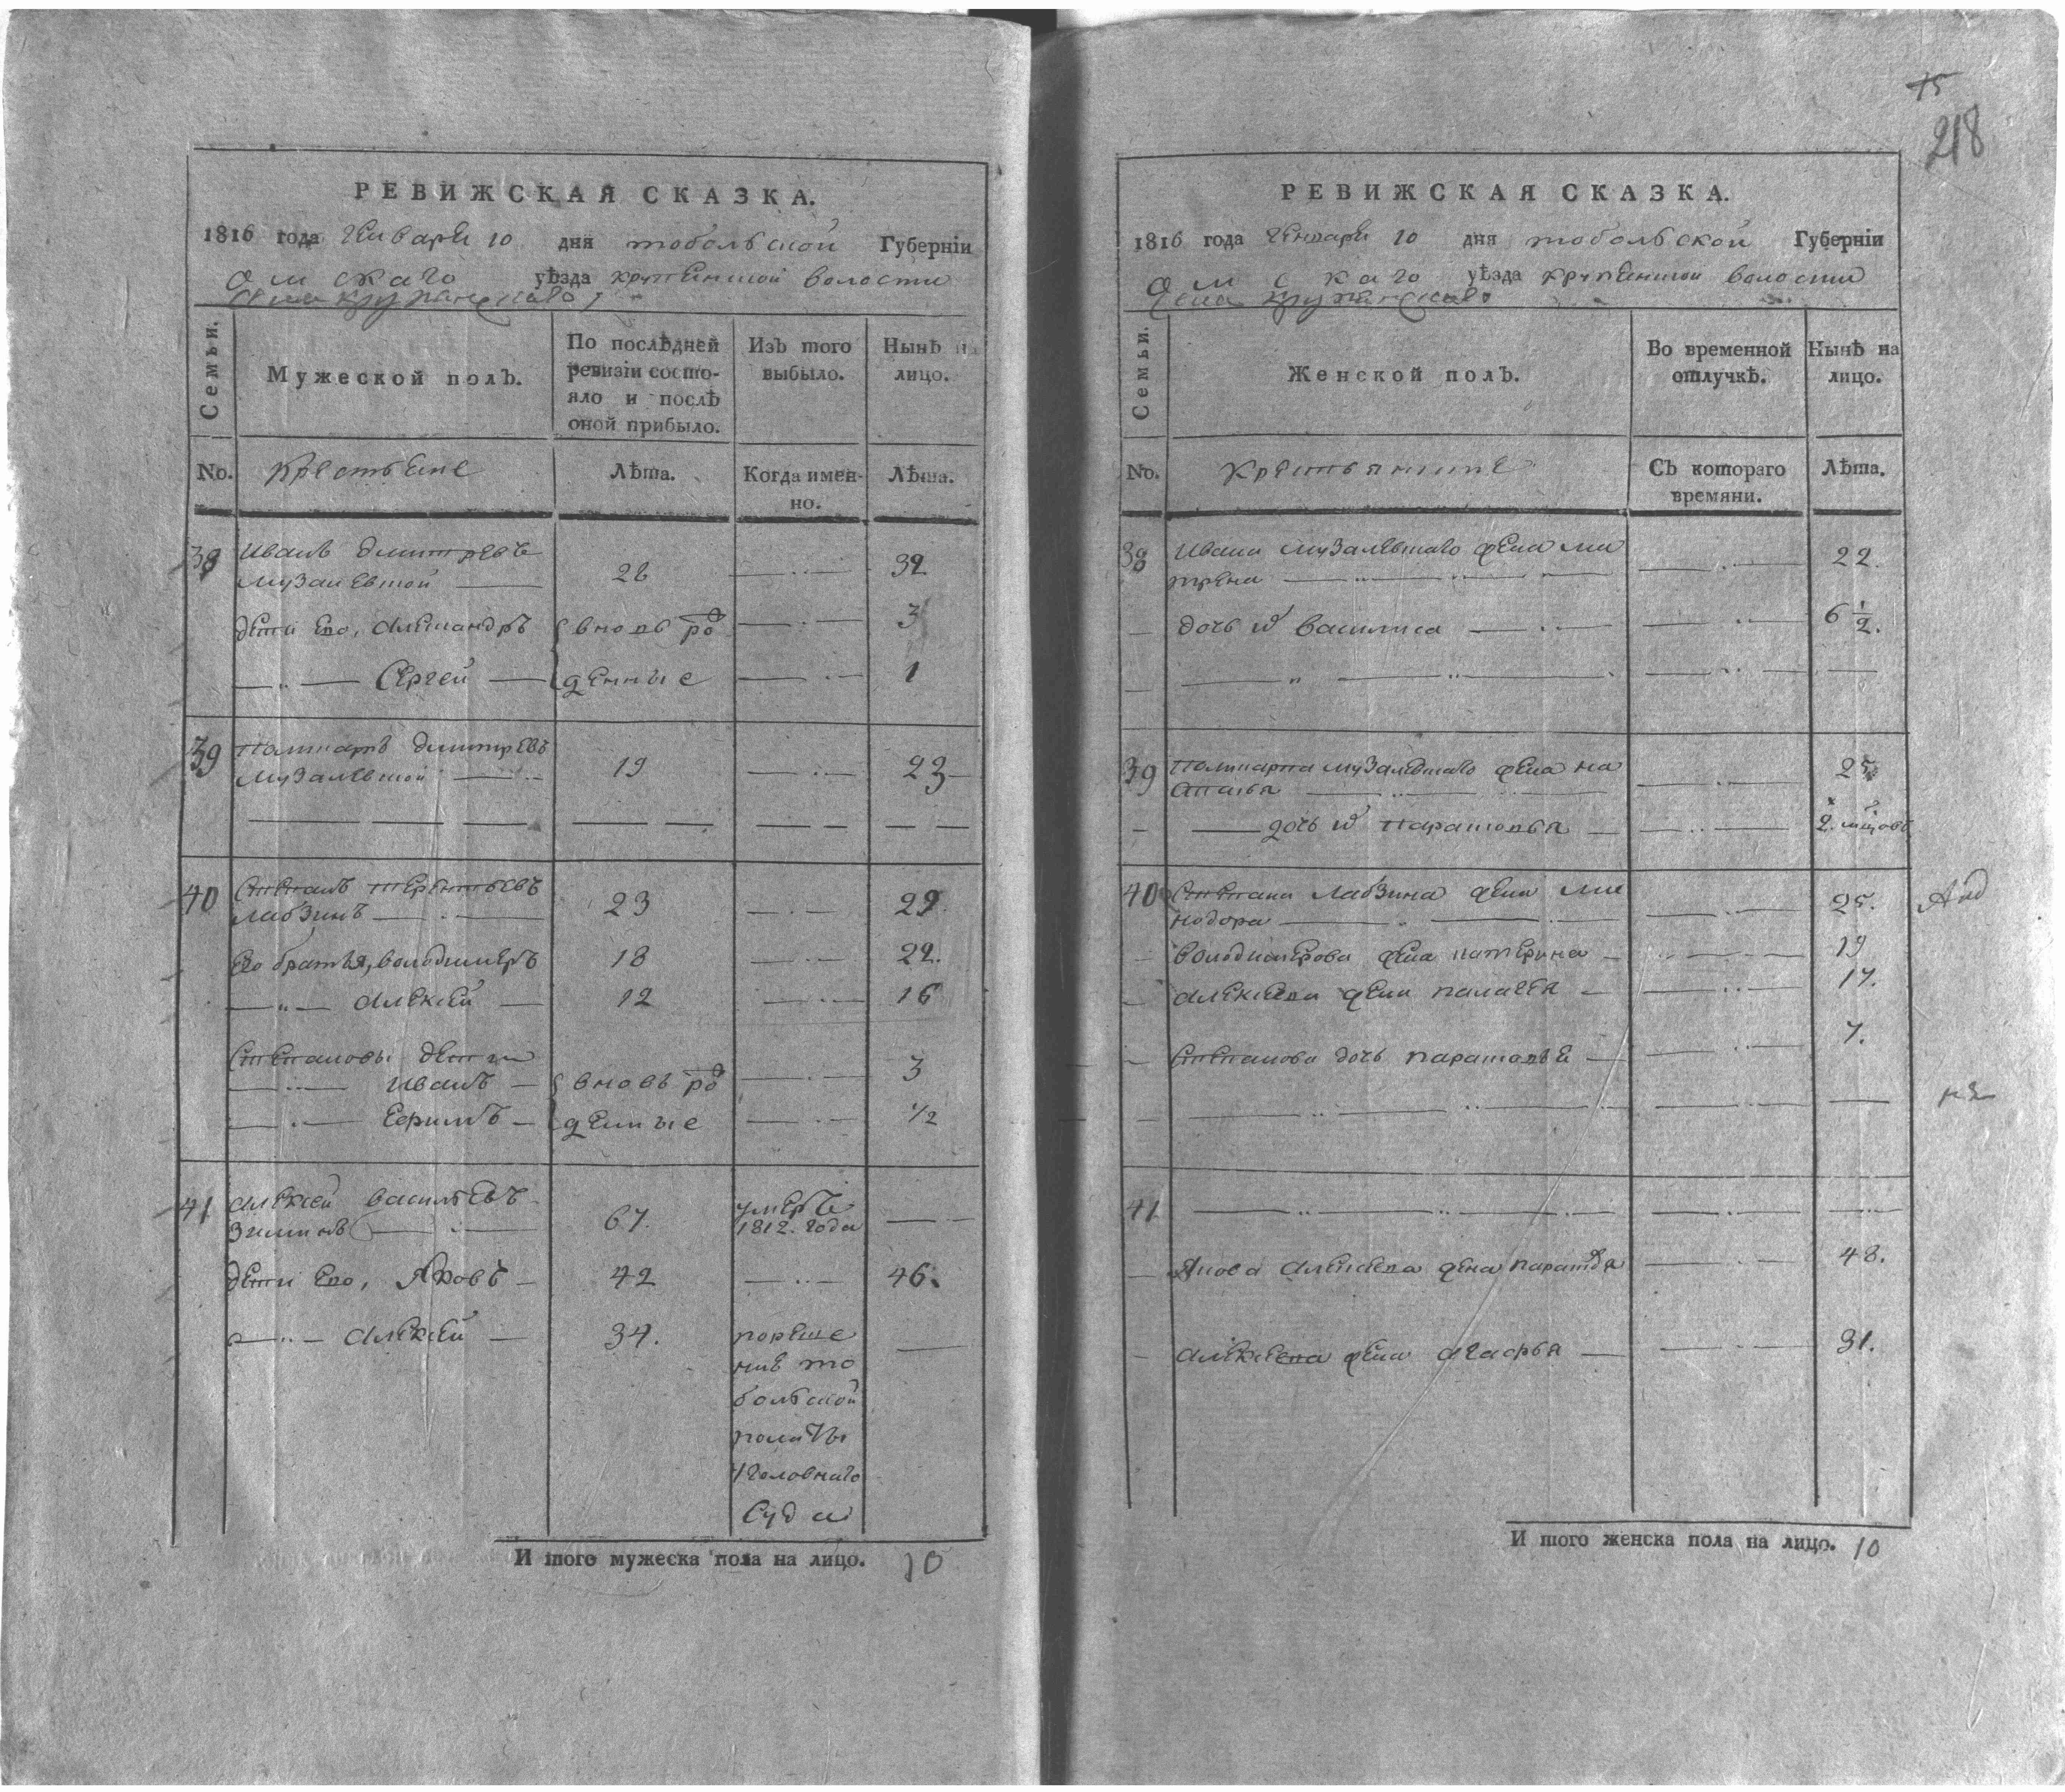 РЕВИЖСКАЯ СКАЗКА.
1816 года Генваря 10 дня тобольской Губерніи
омскаго уѣзда крупенской волости
Семьи.
Мужеской полъ.
По послѣдней ревизіи состо-
яло и послѣ
оной прибыло.
Изъ того
выбыло.
Нынѣ на
лицо.
No. крестьяне Лѣта. Когда имен-
но. Лѣта.
38 Иванъ дмитревъ
музалевской 28 32
дети ево, Александръ вновь ро 3
Сергей жденные 1
39 поликарпъ дмитревъ
музалевской 19 23
40 Степанъ терентьевъ
лабзинъ 23 29
Ево братья, володимеръ 18 22.
Алексей 12 16
Степановы дети
Иванъ вновь ро 3
Ефимъ жденные 1/2
41 Алексей васильевъ
Зиминъ 67. умеръ
1812. года
дети ево, Яковъ 42 46.
Алексей 34. по реше
ние то
больской
полаты
уголовнаго
Суда
И того мужеска пола на лицо. 10
15
218
РЕВИЖСКАЯ СКАЗКА.
1816 года Генваря 10 дня тобольской Губерніи
омскаго уѣзда крупенской волости
Семьи.
Женской полъ.
Во временной
отлучкѣ.
Нынѣ на
лицо.
No. Крестьянские Съ котораго
времяни. Лѣта.
38 Ивана музалевскаго жена ма
трена 22.
дочь василиса 6 1/2.
39 поликарпа музалевскаго жена на
талья 25
дочь парасковья 2. мцовъ
40 Степана лабзина жена ми
нодора 25.
володимерова жена катерина 19
Алексеева жена палагея 17.
Степанова дочь парасковье 7.
41
Якова Алексеева жена парасковья 48.
Алексеева жена агафья 31.
И того женска пола на лицо. 10